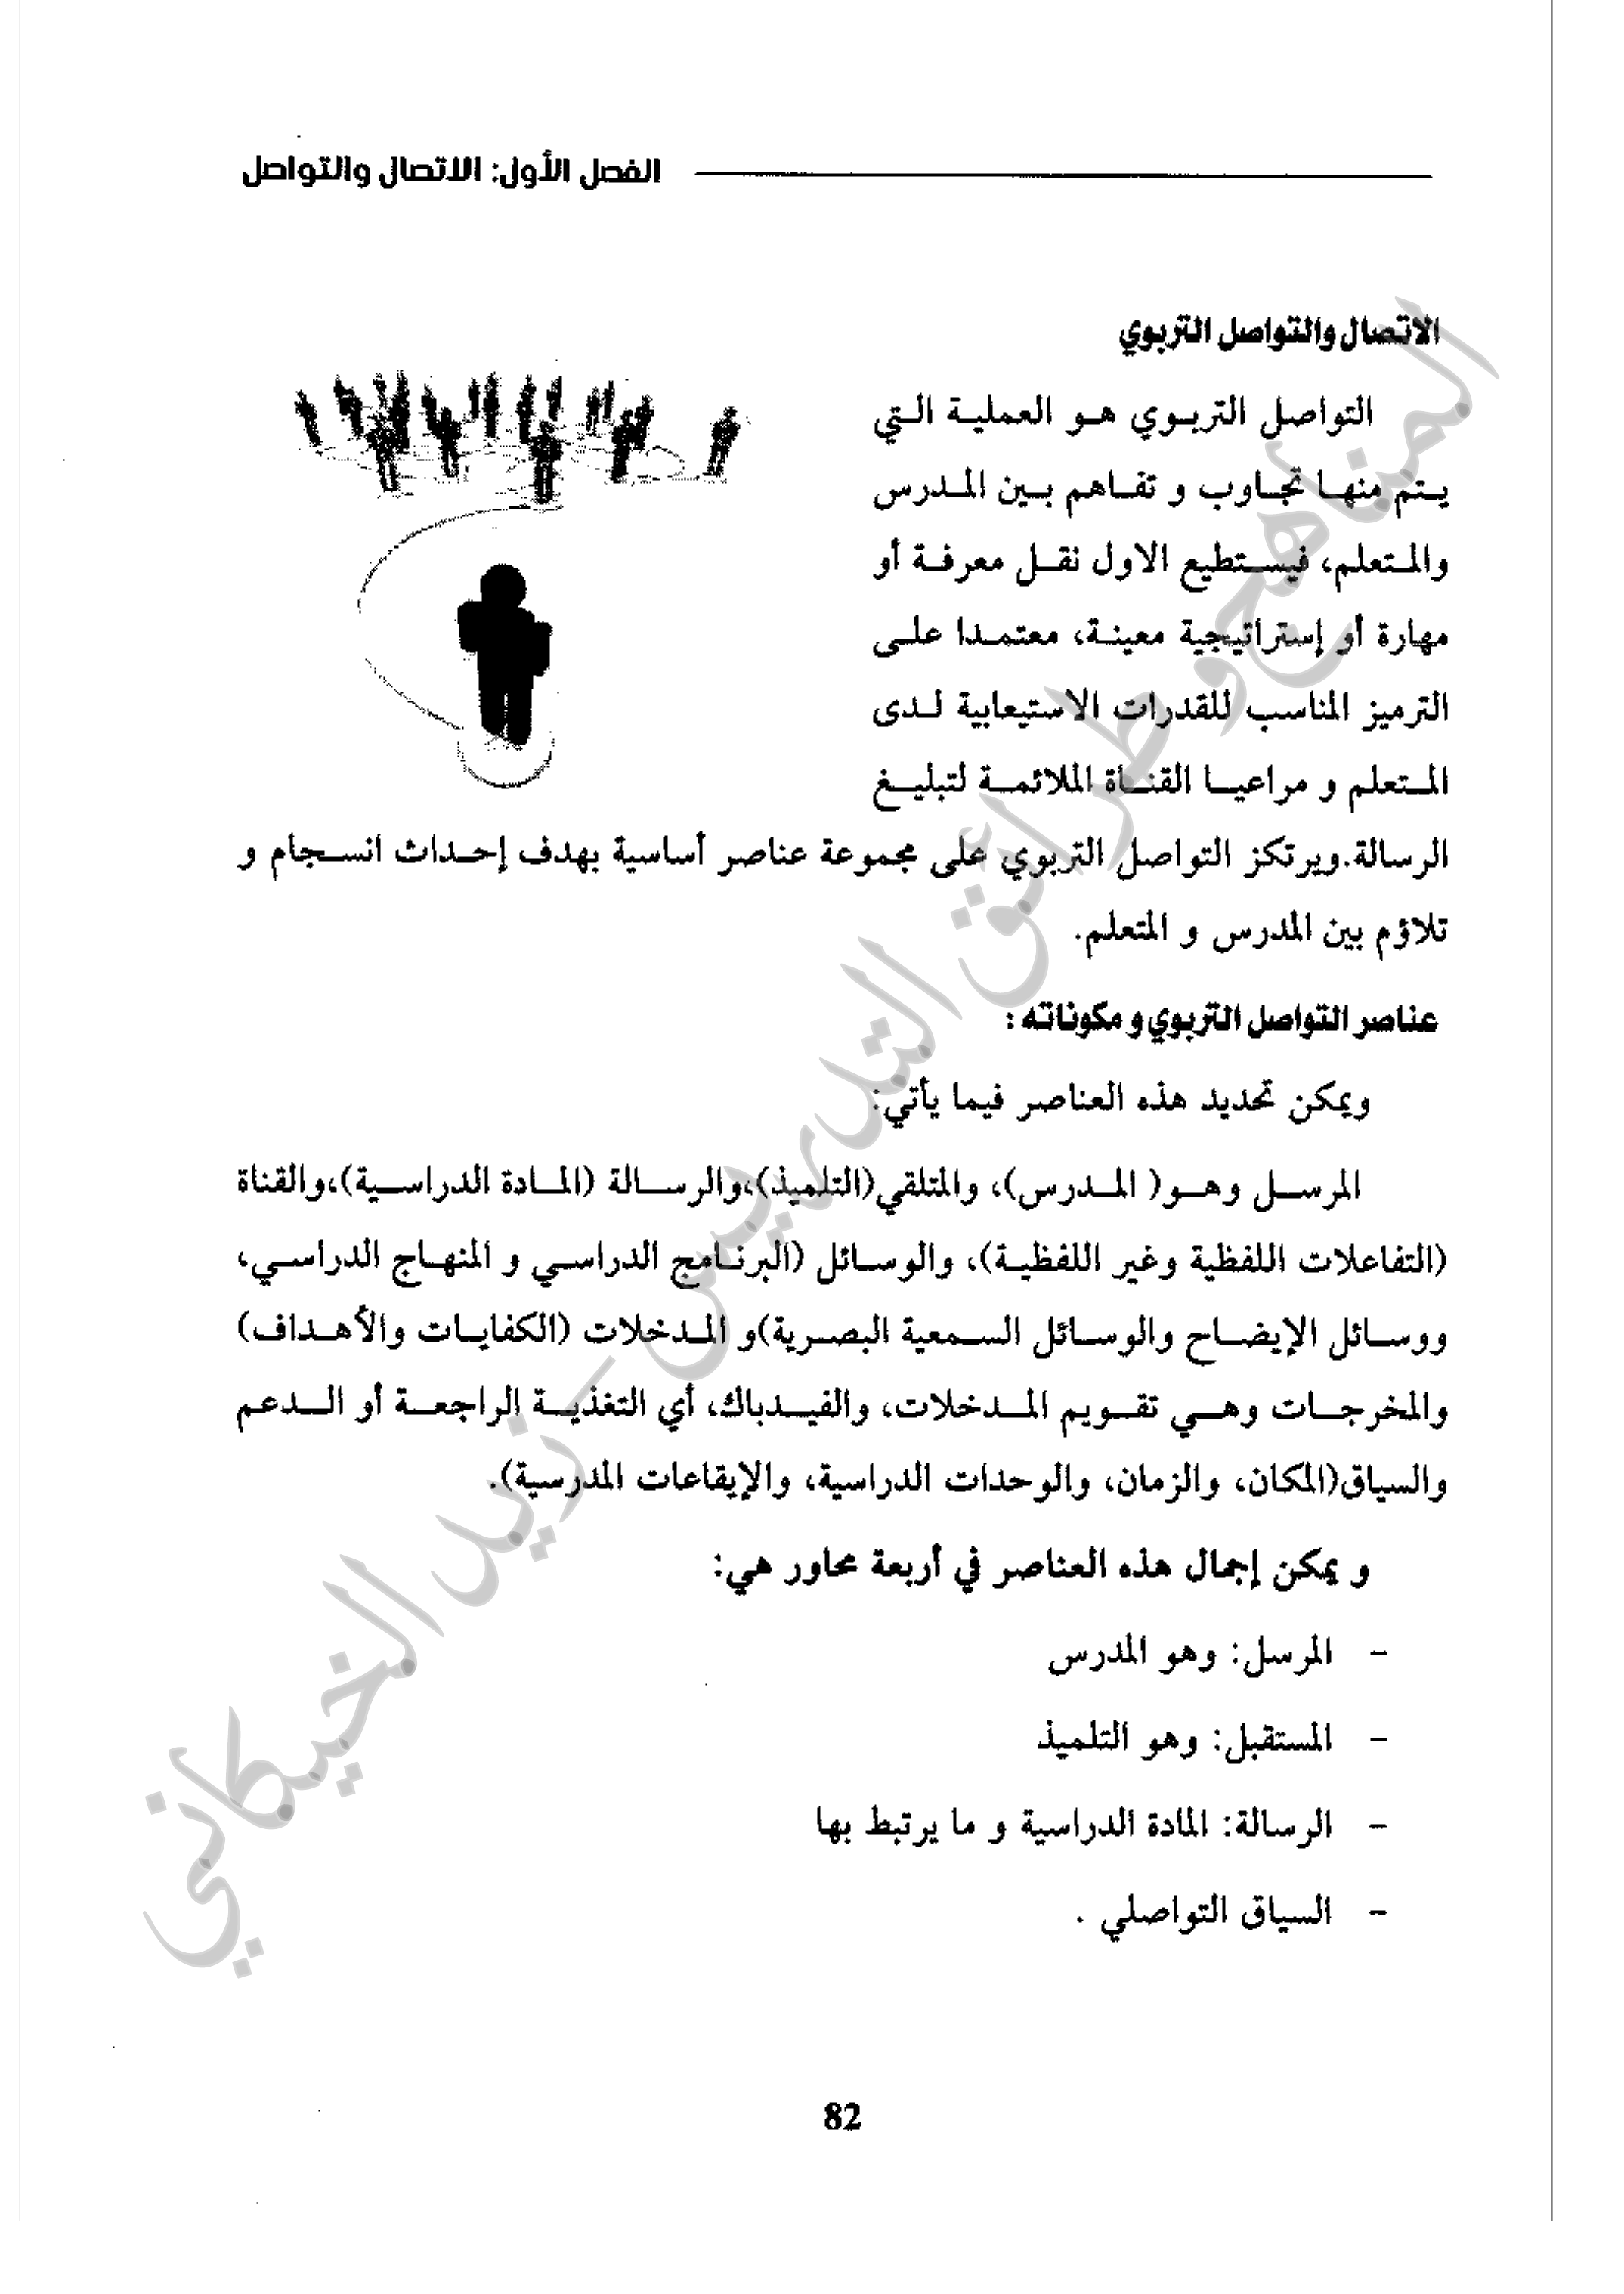 الفصل الأول: الاتصال والتواصل
الاتصال والتواصل التربوي
التواصل التربوي هو العملية التي
يتم منها تجاوب و تفاهم بين المدرس
والمتعلم، فيستطيع الاول نقل معرفة أو
مهارة أو إستراتيجية معينة، معتمدا على
الترميز المناسب للقدرات الاستيعابية لدى
المتعلم و مراعيا القناة الملائمة لتبليغ
الرسالة.ويرتكز التواصل التربوي على مجموعة عناصر أساسية بهدف إحداث انسجام و
تلاؤم بين المدرس و المتعلم.
عناصر التواصل التربوي و مكوناته :
ويمكن تحديد هذه العناصر فيما يأتي:
المرسل وهو( المدرس)، والمتلقي(التلميذ)،والرسالة (المادة الدراسية)،والقناة
(التفاعلات اللفظية وغير اللفظية)، والوسائل (البرنامج الدراسي و المنهاج الدراسي،
ووسائل الإيضاح والوسائل السمعية البصرية)و المدخلات (الكفايات والأهداف)
والمخرجات وهي تقويم المدخلات، والفيدباك، أي التغذية الراجعة أو الدعم
والسياق(المكان، والزمان، والوحدات الدراسية، والإيقاعات المدرسية).
و يمكن إجمال هذه العناصر في أربعة محاور هي:
- المرسل: وهو المدرس
- المستقبل: وهو التلميذ
- الرسالة: المادة الدراسية و ما يرتبط بها
- السياق التواصلي .
82
المناهج وطرائق التدريس - زيد الخيكاني